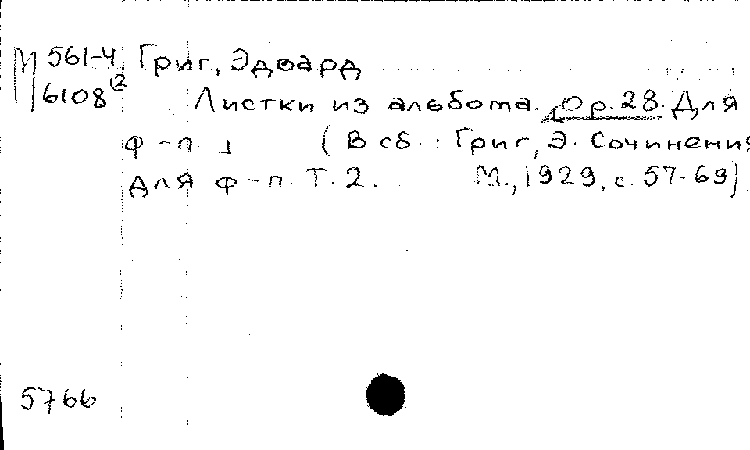 М 561-4 Григ, Эдвард
6108 (2
Листки из альбома. Op. 28. Для
ф-п. (В сб.: Григ, Э. Сочинения
для ф-п. Т. 2. М., 1929, с. 57-69)
5766